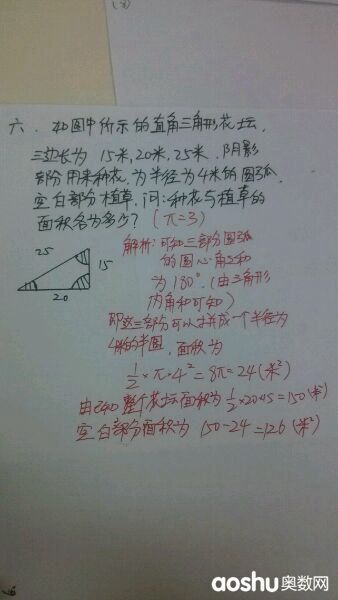 六、如图中所示的直角三角形花坛,
三边长为 15米,20米,25米.阴影
部分用来种花,为半径为4米的圆弧.
空白部分植草,问:种花与植草的
面积各为多少?(π=3)
25
15
20
解析:可知三部分圆弧
的圆心角之和
为180°.(由三角形
内角和可知)
即这三部分可以拼成一个半径为
4米的半圆,面积为
1/2×π×4²=8π=24(米²)
由已知整个花坛面积为1/2×20×15=150(米²)
空白部分面积为 150-24=126(米²)
aoshu奥数网